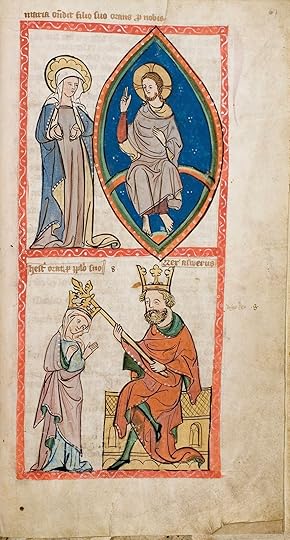 maria ondit filio suo orans p nobis
hest orat p pplo suo
Rex aswerus